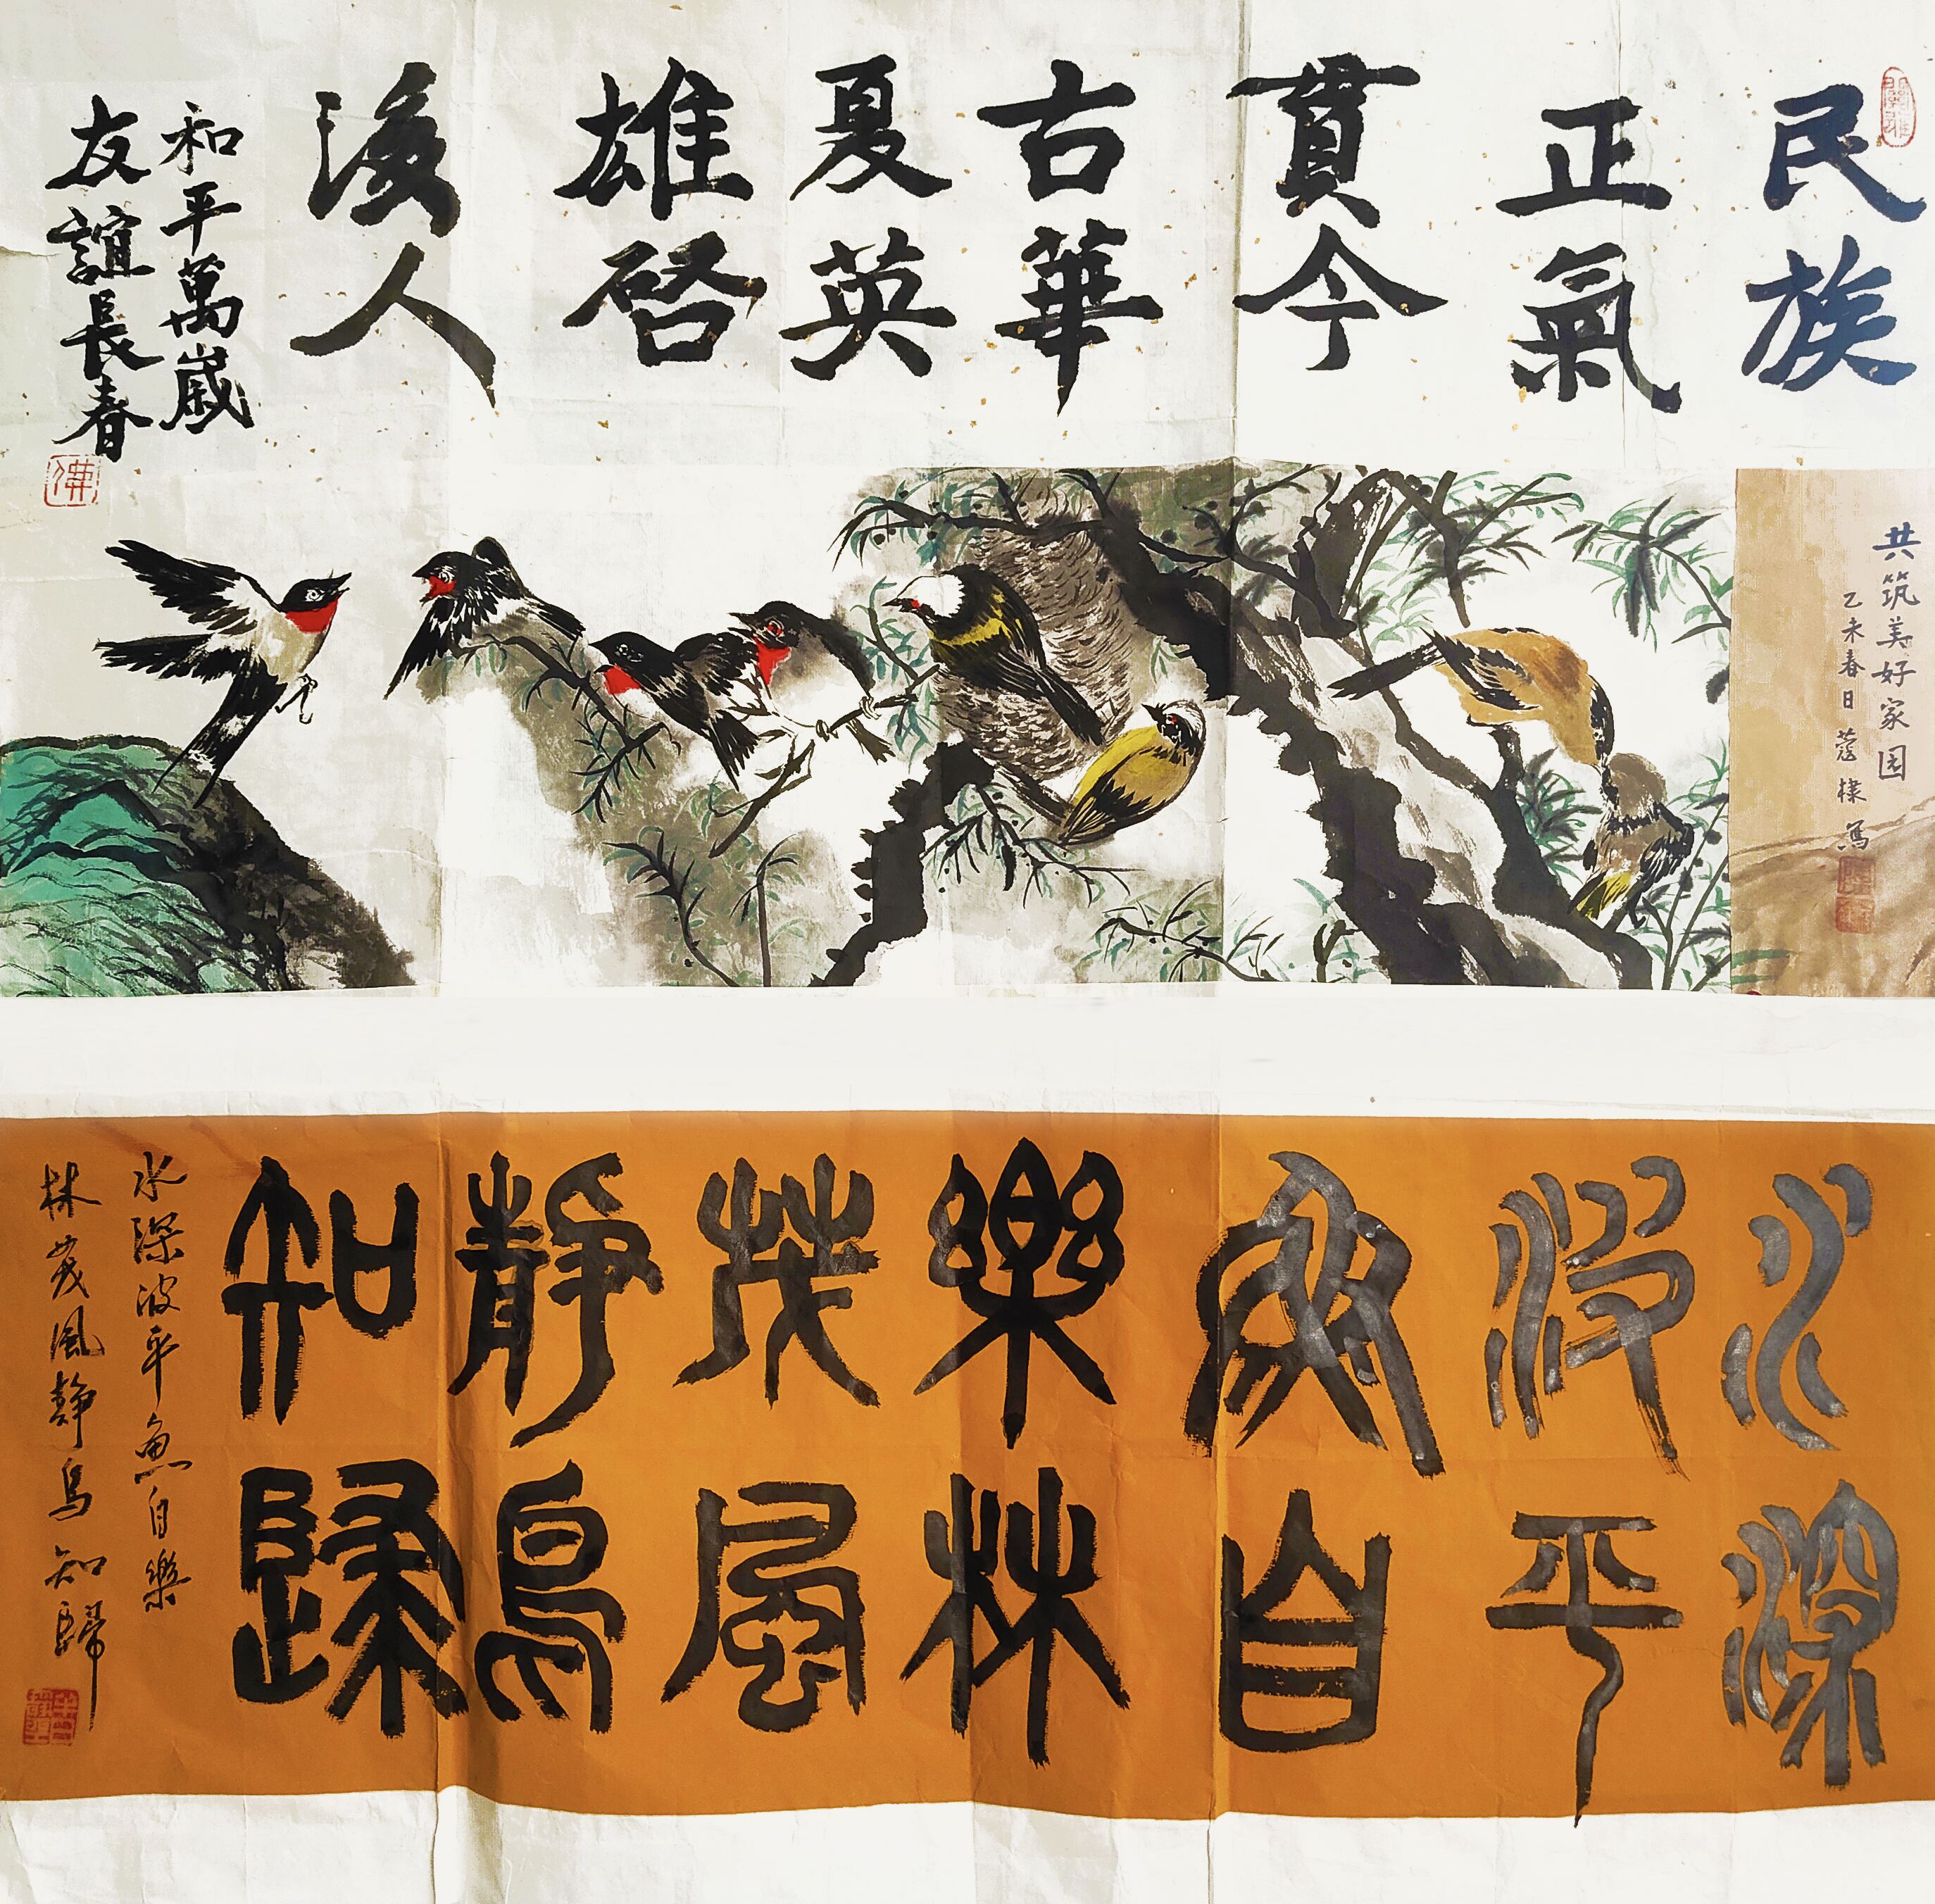 民族
正氣
貫今
古華
夏英
雄啓
後人
和平萬歲
友誼長春
佛
共筑美好家园
乙未春日
水深
波平
魚自
樂林
茂風
靜鳥
知歸
水深波平魚自樂
林茂風靜鳥知歸